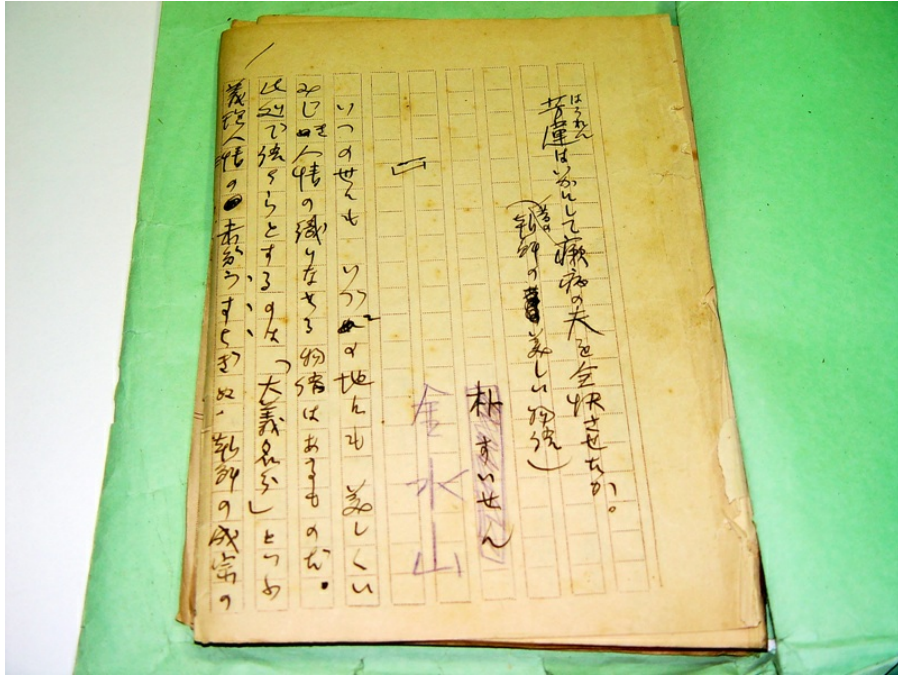 はうれん
芳蓮はいかにして癩病の夫を全快させたか。
(昔の朝鮮の美しい物語)
朴すいせん
金水山
いつの世にも いづこの地にも 美しくい
みじき人情の織りなせる物語はあるものだ。
此処で語らうとするのは「大義名分」といふ
義理人情の未だうすらぎぬ、朝鮮の成宗の